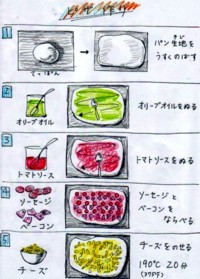 1
パン生地を
きじ
うすくのばす
てっぱん
2
オリーブオイル
オリーブオイルをぬる
3
トマトソース
トマトソースをぬる
4
ソーセージ
ベーコン
ソーセージと
ベーコンを
ならべる
5
チーズ
チーズをのせる
190℃ 20分